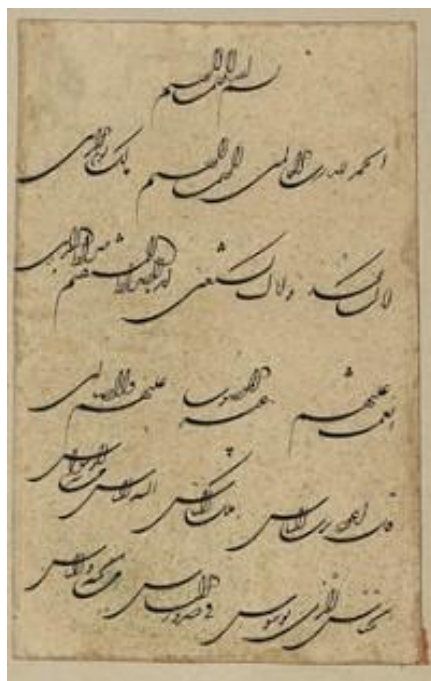 بسم الله الرحمن الرحیم
الحمد لله رب العالمین الرحمن الرحیم ملک یوم الدین
ایاک نعبد و ایاک نستعین اهدنا الصراط المستقیم صراط الذین
انعمت علیهم غیر المغضوب علیهم ولا الضالین
قل اعوذ برب الناس ملک الناس اله الناس من شر الوسواس
الخناس الذی یوسوس فی صدور الناس من الجنة والناس